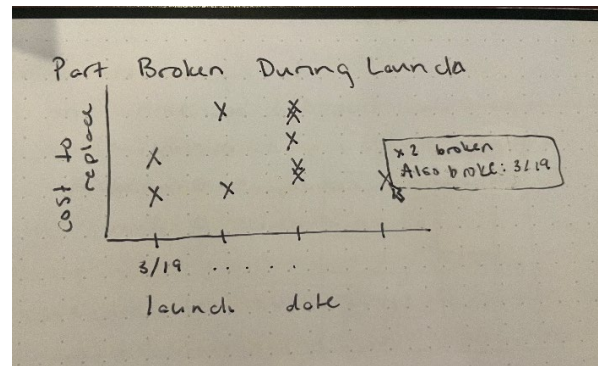 Part Broken During Launch
cost to
replace
x 2 broken
Also broke: 3/19
3/19 . . . . .
launch date